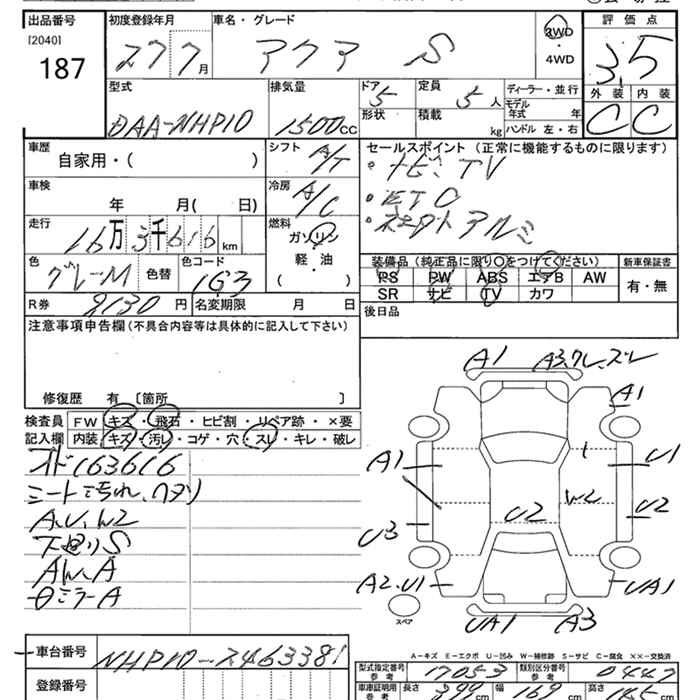 出品番号 初度登録年月 車名・グレード 評価点
[2040]
187
27 7月 アクア S 2WD・4WD 3.5
外装 内装
C C
型式 排気量 ドア 定員 ディーラー・並行
DAA-NHP10 1500CC 5 5人 モデル年式 年
形状 積載 kg ハンドル 左・右
車歴 シフト セールスポイント(正常に機能するものに限ります)
自家用・( ) A/T ・ナビ、TV
車検 冷房 ・ETC
年 月( 日) A/C ・社外アルミ
走行 燃料
16万3千616km ガソリン
軽・油
( )
色 色替 色コード 装備品(純正品に限り○をつけてください) 新車保証書
グレーM 1G3 PS PW ABS エアB AW 有・無
SR サビ TV カワ
R券 8130円 名変期限 月 日 後日品
注意事項申告欄(不具合内容等は具体的に記入して下さい)
修復歴 有 [箇所 ]
検査員記入欄 FW キズ・飛石・ヒビ割・リペア跡・×要
内装 キズ・汚レ・コゲ・穴・スレ・キレ・破レ
メーター163616
シート汚れ、ヘタリ
A、U、W2
下廻りS
AW、A
ミラーA
A1 A3、ワレ、ズレ
A1
A1 U1
U3 U2 W2 U2
A2、U1 UA1
スペア
UA1 A3
A-キズ E-エクボ U-凹み W-補修跡 S-サビ C-腐食 ××-交換済
車台番号 NHP10-2463381
登録番号
型式指定番号 参考 17053 類別区分番号 参考 0447
車庫証明用 参考 長さ 399cm 幅 169cm 高さ cm